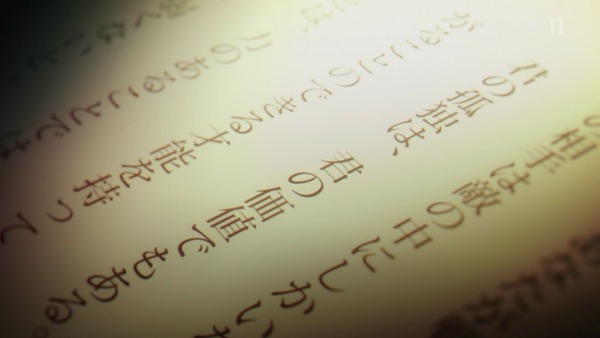 あなたが
の相手は敵の中にしかい
君の孤独は、君の価値でもある。
がることのできる才能を持って
は、力のあることでは